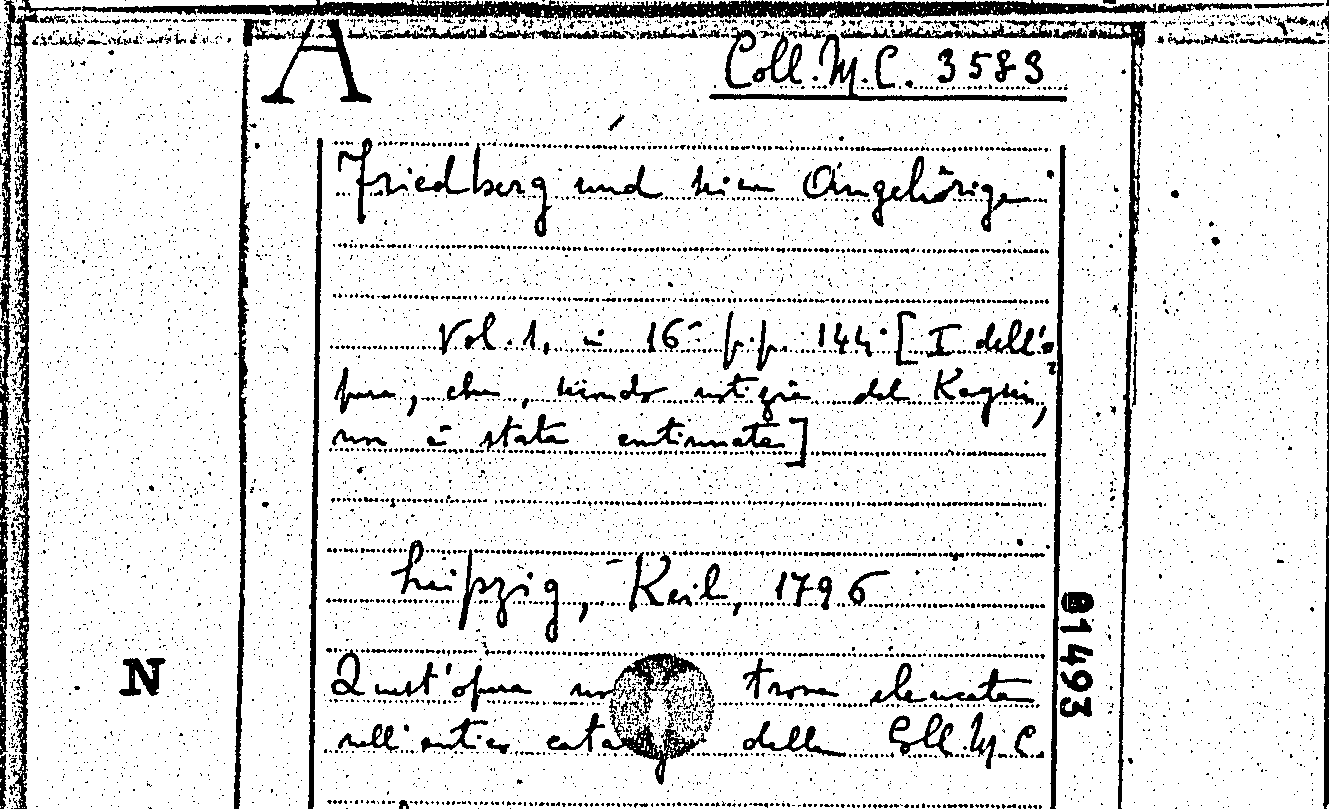 A
Coll. M. C. 3583
Friedberg und seine Angehörigen
Vol. 1, in 16° p.p. 144 [I dell'o-
pera, che, secondo notizia del Kayser,
non è stata continuata]
Leipzig, Keil, 1796
Quest'opera trova elencata
nell'antico della Coll. M. C.
N
01493